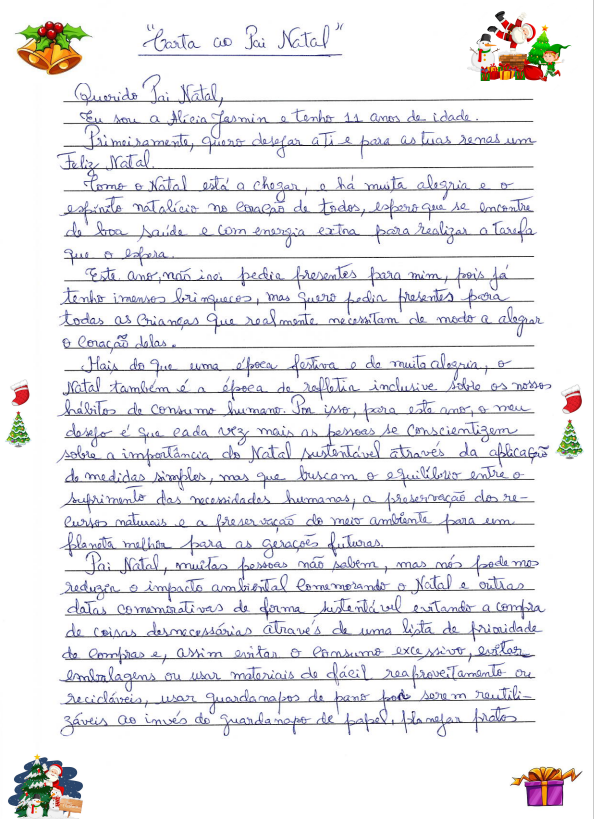 "Carta ao Pai Natal"
Querido Pai Natal,
Eu sou a Alícia Jasmin e tenho 11 anos de idade.
Primeiramente, quero desejar a ti e para as tuas renas um
Feliz Natal.
Como o Natal está a chegar, e há muita alegria e o
espírito natalício no coração de todos, espero que se encontre
de boa saúde e com energia extra para realizar a tarefa
que o espera.
Este ano, não irei pedir presentes para mim, pois já
tenho imensos brinquecos, mas quero pedir presentes para
todas as crianças que realmente necessitam de modo a alegrar
o coração delas.
Mais do que uma época festiva e de muita alegria, o
Natal também é a época de refletir inclusive sobre os nossos
hábitos de consumo humano. Por isso, para este ano, o meu
desejo é que cada vez mais as pessoas se conscientizem
sobre a importância do Natal sustentável através da aplicação
de medidas simples, mas que buscam o equilíbrio entre o
suprimento das necessidades humanas, a preservação dos re-
cursos naturais e a preservação do meio ambiente para um
planeta melhor para as gerações futuras.
Pai Natal, muitas pessoas não sabem, mas nós podemos
reduzir o impacto ambiental comemorando o Natal e outras
datas comemorativas de forma sustentável evitando a compra
de coisas desnecessárias através de uma lista de prioridade
de compras e, assim evitar o consumo excessivo, evitar
embalagens ou usar materiais de fácil reaproveitamento ou
recicláveis, usar guardanapos de pano por serem reutili-
záveis ao invés do guardanapo de papel, planejar pratos